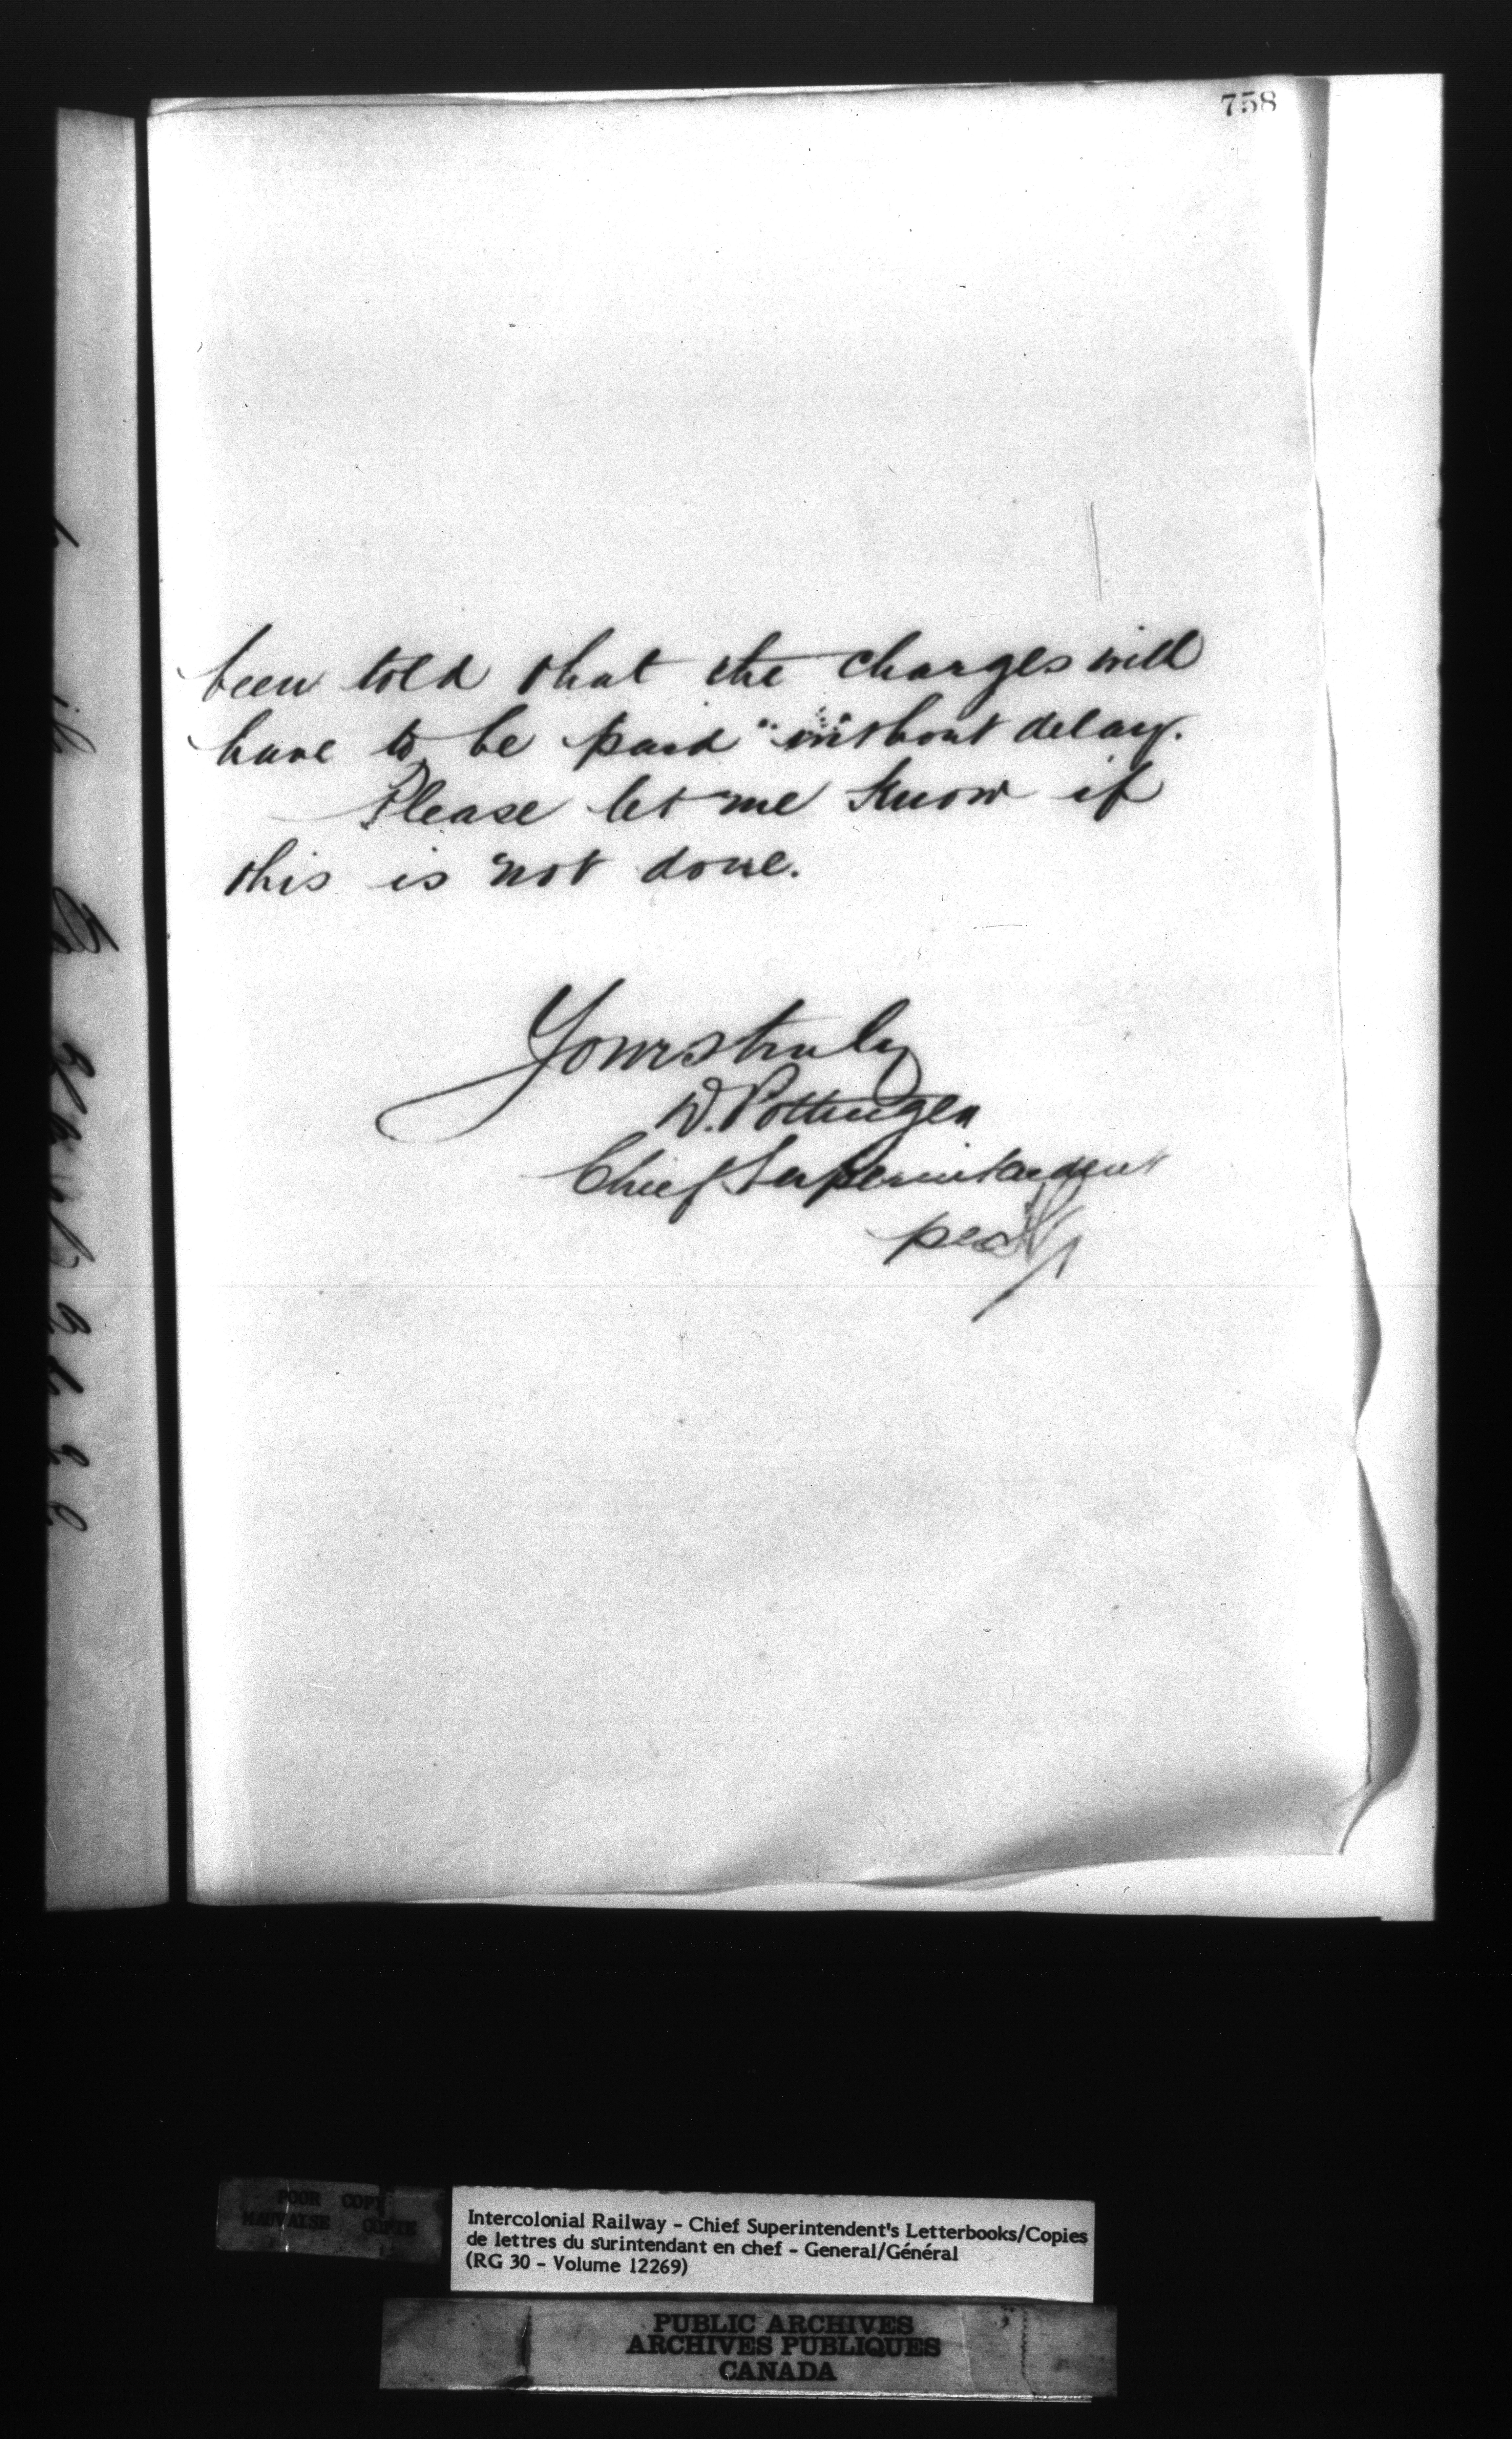 758
been told that the charges will
have to be paid without delay.
Please let me know if
this is not done.
Yours truly
D. Pottinger
Chief Superintendent
per
POOR COPY
MAUVAISE COPIE
Intercolonial Railway - Chief Superintendent's Letterbooks/Copies
de lettres du surintendant en chef - General/Général
(RG 30 - Volume 12269)
PUBLIC ARCHIVES
ARCHIVES PUBLIQUES
CANADA